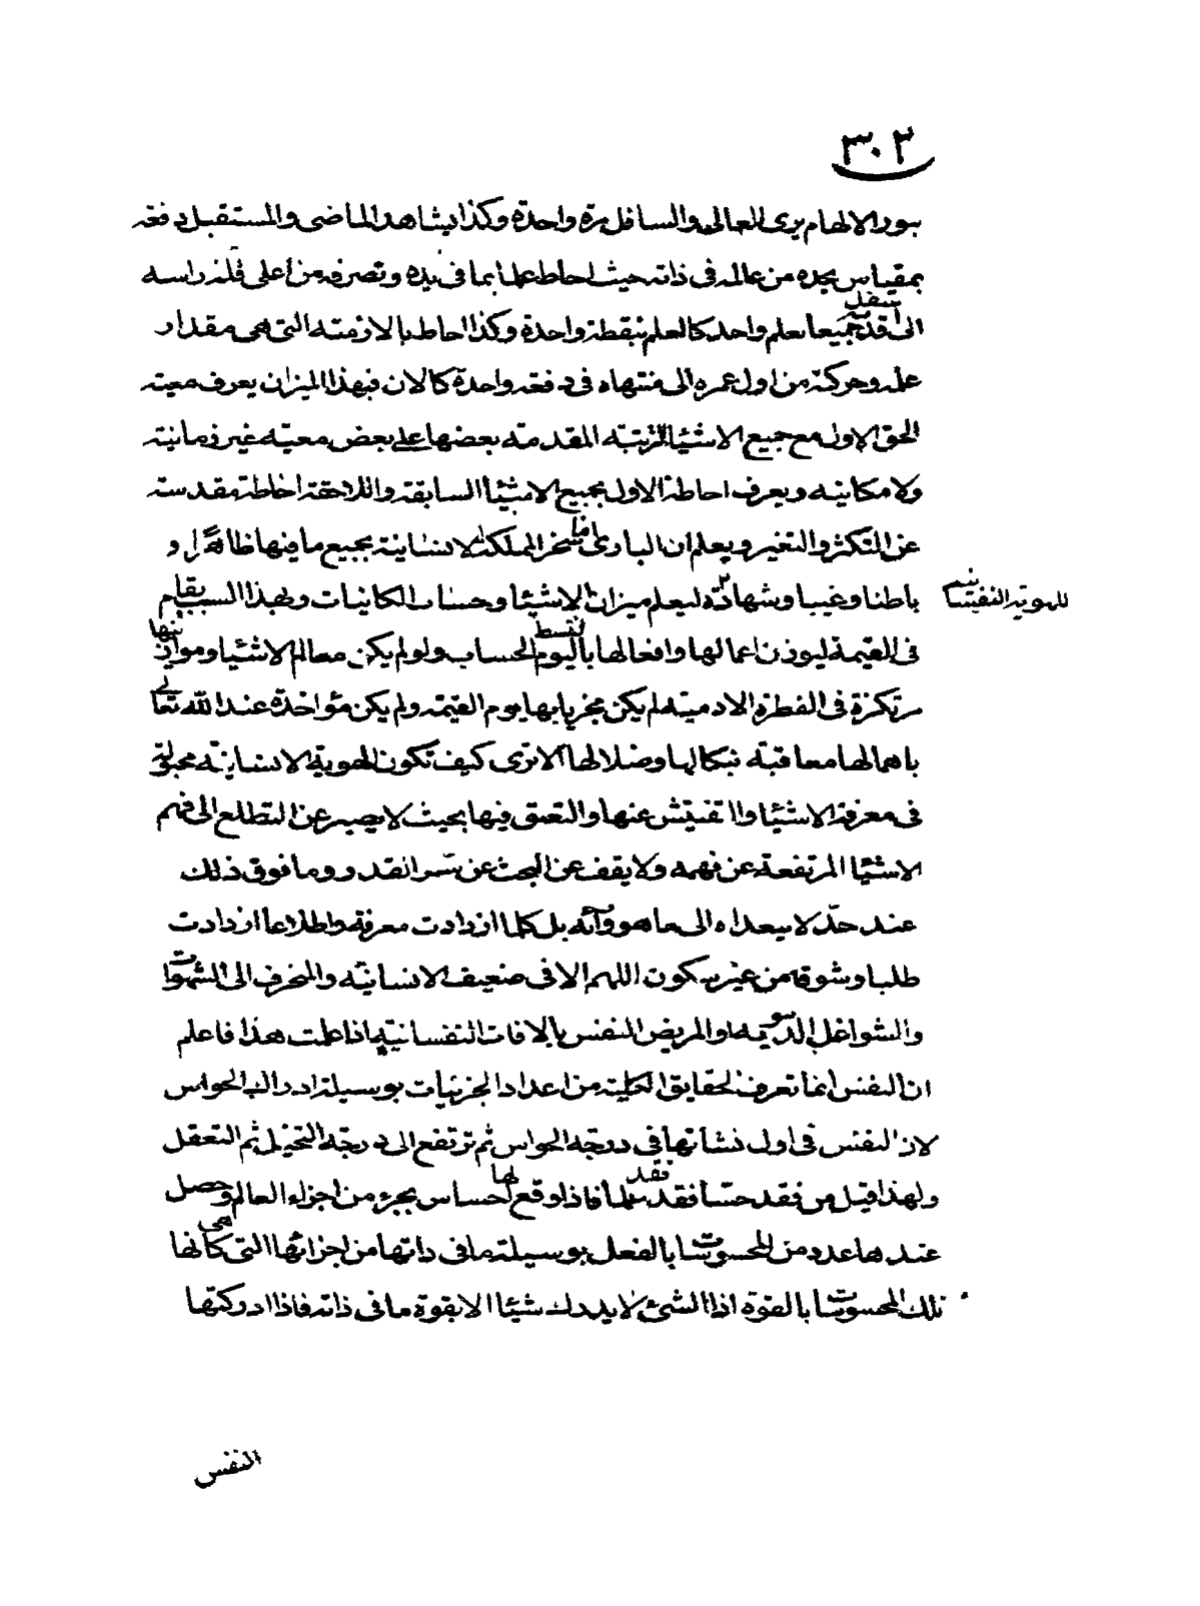 ٣٠٢
بنور الالهام يرى العالى والسافل مرة واحدة وكذا يشاهد الماضى والمستقبل دفعة
بمقياس يجده من عالمه فى ذاته حيث احاط علما بما فى يده وتصرفه من أعلى قلة راسه
الى أسفل قدمه جميعا بعلم واحد كالعلم بنقطة واحدة وكذا احاط بالازمنة التى هى مقدار
عله وحركته من اول عمره الى منتهاه فى دفعة واحدة كالان فبهذا الميزان يعرف معية
الحق الاول مع جميع الاشيا المرتبة المقدمة بعضها على بعض معية غير زمانية
ولا مكانية ويعرف احاطة الاول بجميع الاشيا السابقة واللاحقة احاطة مقدسة
عن التكثر والتغير ويعلم ان البارى انما سخر المملكة الانسانية بجميع ما فيها ظاهرا و
باطنا وغيبا وشهادة ليعلم ميزان الاشيا وحساب الكاينات وبهذا السبب يقام
للهوية النفسانية
فى القيمة ليوزن اعمالها وافعالها بالقسط ليوم الحساب ولو لم يكن معالم الاشيا وموازينها
مرتكزة فى الفطرة الادمية لم يكن مجزيا بها يوم القيمة ولم يكن مؤاخذة عند الله تعالى
باهمالها معاقبة بنكالها وضلالها الا ترى كيف تكون الهوية الانسانية مجبولة
فى معرفة الاشيا والتفتيش عنها والتعمق فيها بحيث لا يصبر عن التطلع الى فهم
الاشيا المرتفعة عن فهمه ولا يقف عن البحث عن سر القدر وما فوق ذلك
عند حد لا يتعداه الى ما هو ورائه بل كلما ازدادت معرفة واطلاعا ازدادت
طلبا وشوقا من غير سكون اللهم الا فى ضعيف الانسانية والمنحرف الى الشهوات
والشواغل الدنيوية والمريض النفس بالافات النفسانية اذا علمت هذا فاعلم
ان النفس انما تعرف الحقايق الكلية من اعداد الجزئيات بوسيلة ادراك الحواس
لان النفس فى اول نشأتها فى درجة الحواس ثم ترتفع الى درجة التخيل ثم التعقل
ولهذا قيل من فقد حسا فقد فقد علما فاذا وقع لها احساس بجزء من اجزاء العالم وحصل
عندها عدد من المحسوسات بالفعل بوسيلة ما فى ذاتها من اجزائها التى هى كانها
تلك المحسوسات بالقوة اذا الشئ لا يدرك شيئا الا بقوة ما فى ذاته فاذا ادركتها
النفس